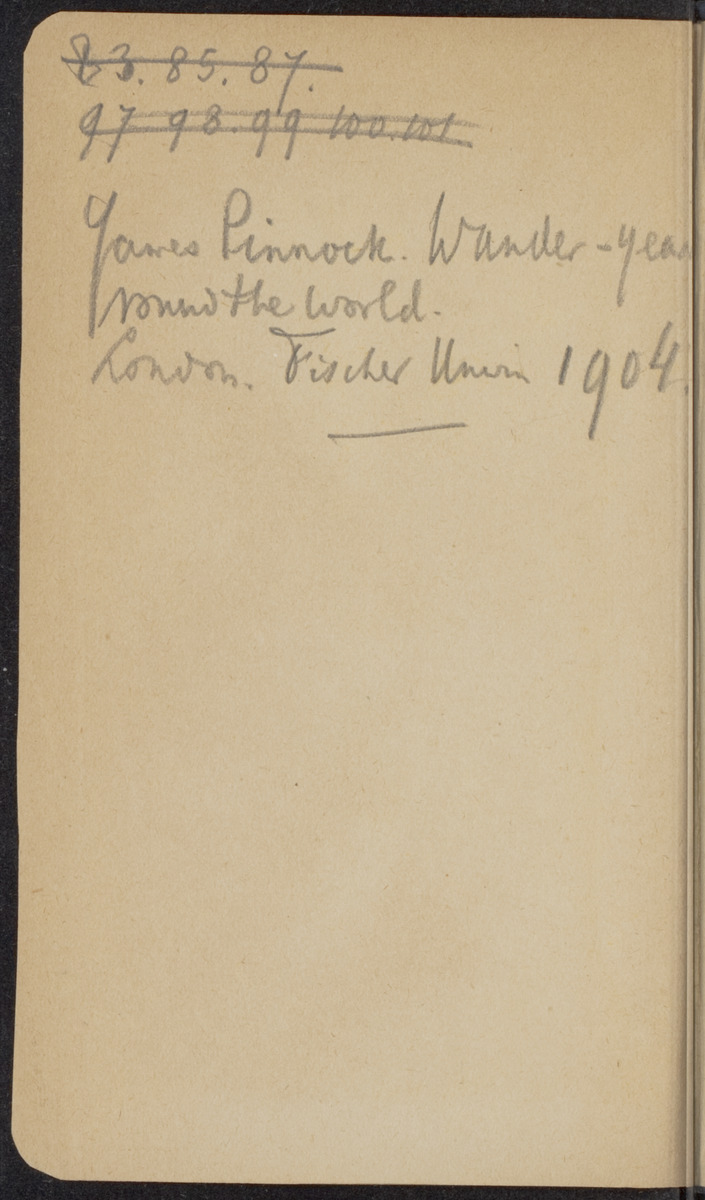 83. 85. 87.
97 98. 99 100. 101
James Pinnock. Wander-years
round the world.
London. Fischer Unwin 1904.